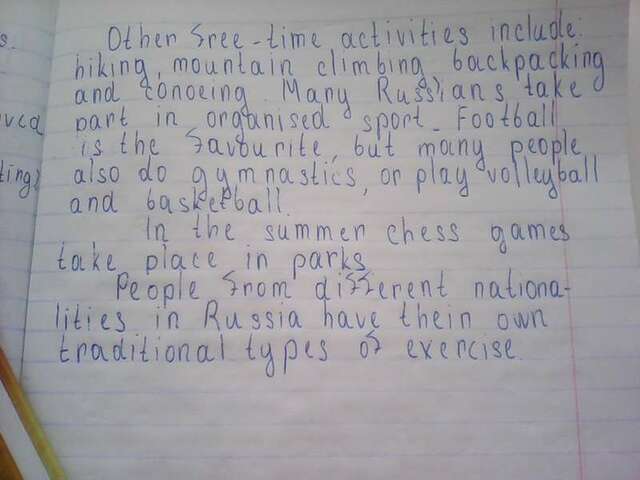 s.
Other free-time activities include:
hiking, mountain climbing, backpacking
and conoeing. Many Russians take
vca
part in organised sport. Football
is the favourite, but many people
ting)
also do gymnastics, or play volleyball
and basketball.
In the summer chess games
take place in parks
People from different nationa-
lities in Russia have thein own
traditional types of exercise.